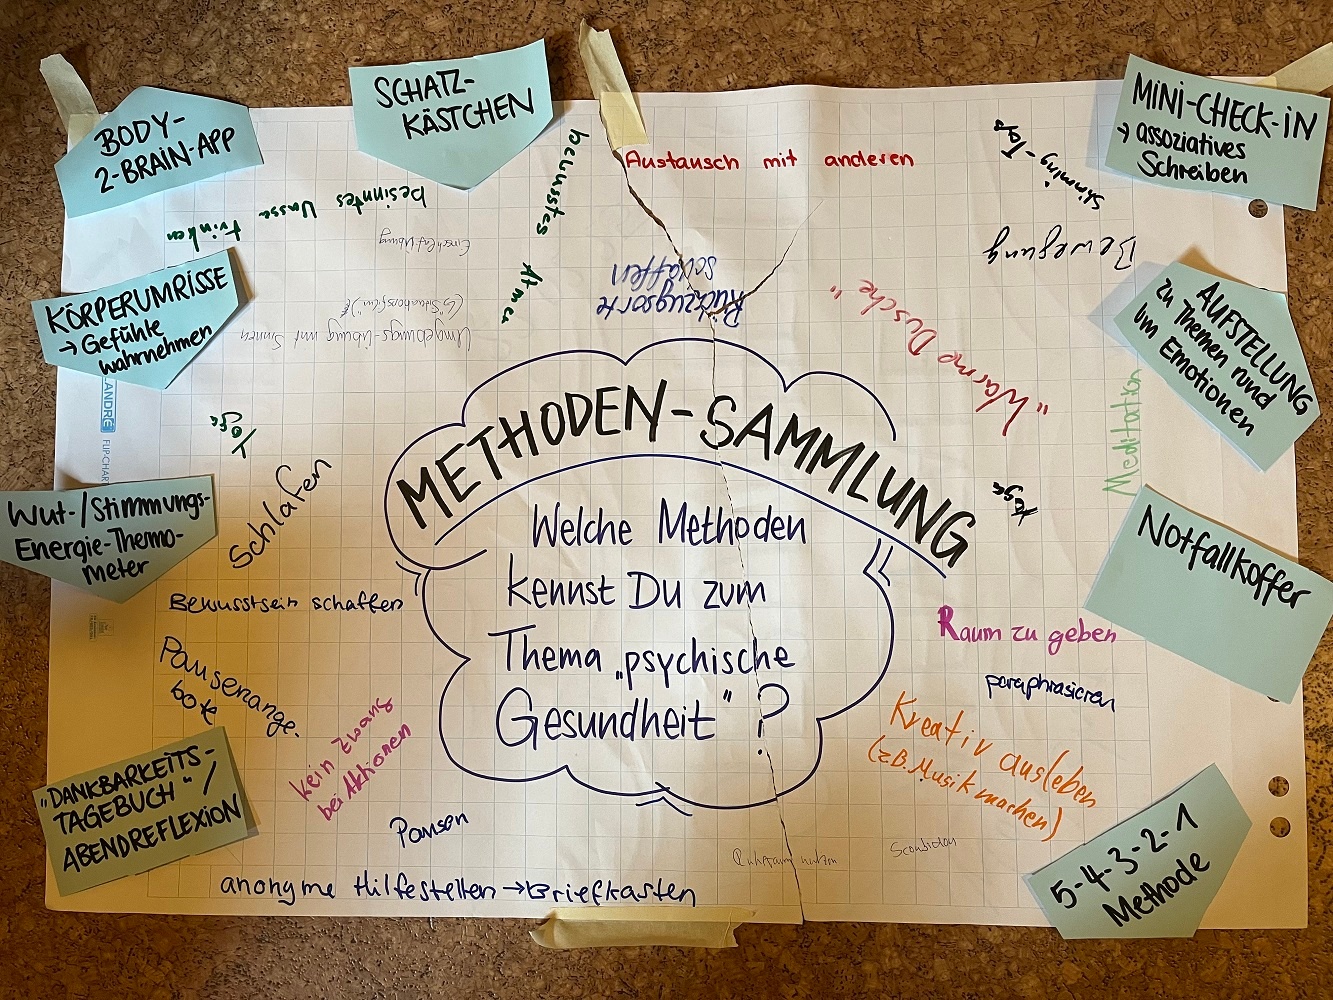 BODY-
2-BRAIN-APP
SCHATZ-
KÄSTCHEN
MINI-CHECK-IN
→ assoziatives
Schreiben
bewusstes
Atmen
Austausch mit anderen
Stimming-Toys
besinntes Wasser trinken
Einschlafübung
Bewegung
Rückzugsorte
schaffen
KÖRPERUMRISSE
→ Gefühle
wahrnehmen
AUFSTELLUNG
zu Themen rund
um Emotionen
Umgebungs-Übung mit Sinnen
"Warme Dusche"
Meditation
LANDRÉ
FLIP-CHART
METHODEN-SAMMLUNG
Welche Methoden
kennst Du zum
Thema „psychische
Gesundheit" ?
Yoga
Schlafen
Wut-/Stimmungs-
Energie-Thermo-
meter
Notfallkoffer
Bewusstsein schaffen
Raum zu geben
Pausenange-
bote
paraphrasieren
kein Zwang
bei Aktionen
Kreativ ausleben
(z.B. Musik machen)
"DANKBARKEITS-
TAGEBUCH" /
ABENDREFLEXION
Pausen
5-4-3-2-1
Methode
Ruheraum nutzen
anonyme Hilfestellen → Briefkasten